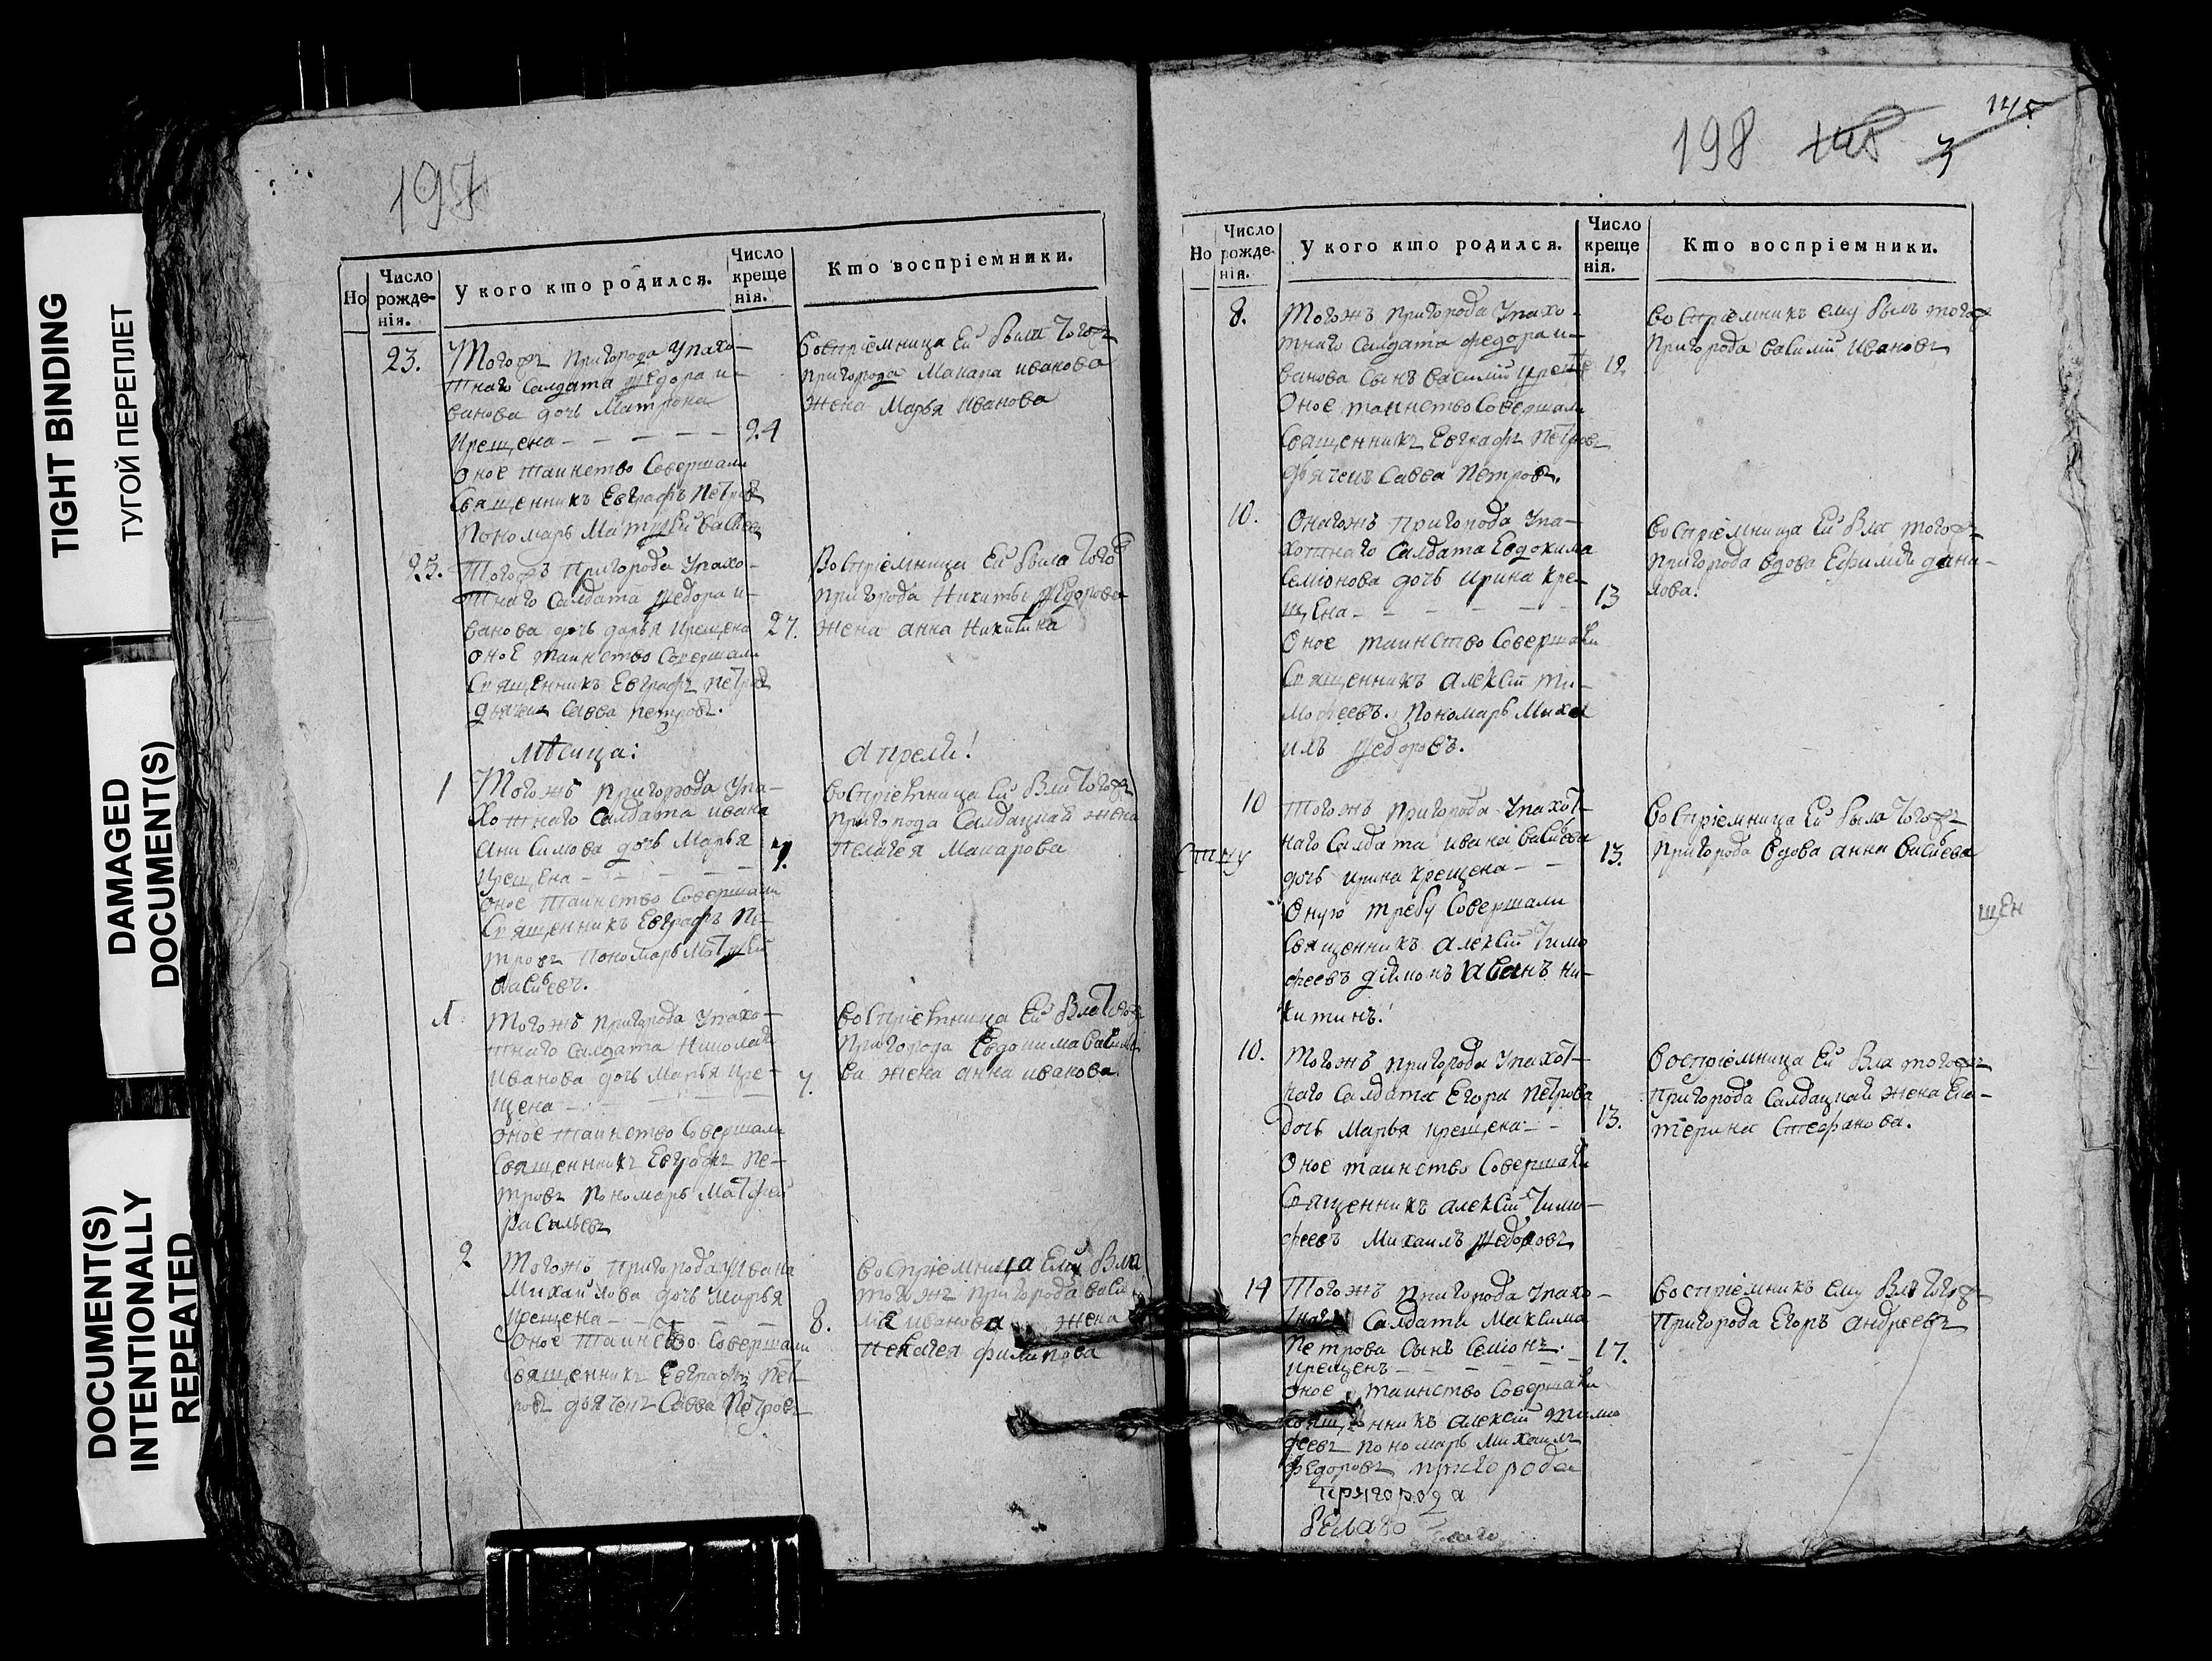 TIGHT BINDING
ТУГОЙ ПЕРЕПЛЕТ
DAMAGED
DOCUMENT(S)
DOCUMENT(S)
INTENTIONALLY
REPEATED
197
Но
Число рожденія.
У кого кто родился.
Число крещенія.
Кто воспріемники.
23.
Тогожъ пригорода Упахо-
тнаго Салдата Федора и-
ванова дочь Матрона
крещена - - - - - 24
Оное таинство Совершали
Священникъ Евграфъ Петровъ
Пономарь Матфей
Воспріемница Ей была тогожъ
пригорода Макара иванова
жена Марья иванова
25.
Тогожъ пригорода Упахо-
тнаго Салдата Федора и-
ванова дочь дарья крещена 27.
оное таинство Совершали
Священникъ Евграфъ Петровъ
дьячекъ Савва петровъ.
Воспріемница Ей была того
пригорода Никиты Федорова
жена анна Никитина
мѣсяца: апреля!
1
Тогожъ пригорода Упа-
хотнаго Салдата ивана
анисимова дочь Марья
крещена - - - - - 7.
Оное таинство Совершали
Священникъ Евграфъ Пе-
тровъ Пономарь Матфей
Пригорода Салдацкая жена
Пелагея Макарова
1
Тогожъ пригорода Упахо-
тнаго Салдата Николая
Иванова дочь Марья кре- 7.
щена
оное таинство Совершали
Священникъ Евграфъ Пе-
тровъ Пономарь Матфей
Васильевъ
Пригорода Евдокима
жена анна иванова.
2
Тогожъ пригорода Ивана
Михайлова дочь Марья
крещена - - - - - 8.
Оное таинство Совершали
Священникъ Евграфъ Пет-
ровъ дьячекъ Савва Петровъ
тогожъ пригорода
иванова жена
пелагея филипова
198 148 3 145
Но
Число рожденія.
У кого кто родился.
Число крещенія.
Кто воспріемники.
8.
Тогожъ пригорода Упахо-
тнаго Салдата федора и-
ванова Сынъ василій 12.
Оное таинство Совершали
Священникъ Евграфъ Петровъ
дьячекъ Савва Петровъ.
воспріемникъ ему былъ тогожъ
Пригорода василій Ивановъ
10.
Онагожъ пригорода Упа-
хотнаго Салдата Евдокима
Семіонова дочь Ирина кре-
щена - - - - - 13
Оное таинство Совершали
Священникъ алексій ти-
мофеевъ. Пономарь Миха
илъ Федоровъ.
воспріемница Ей тогожъ
Пригорода вдова
10
Тогожъ пригорода Упахот-
наго Салдата ивана
дочь ирина крещена - - 13.
Оную требу Совершали
Священникъ алексій Тимо
феевъ діяконъ иванъ Ни-
китинъ!
воспріемница Ей была тогожъ
Пригорода вдова анна
щен
10.
Тогожъ пригорода Упахот-
наго Салдата Егора Петрова
дочь Марья крещена - - 13.
Оное таинство Совершали
Священникъ алексій Тимо-
феевъ Михаилъ Федоровъ
Воспріемница Ей тогожъ
Пригорода Салдацкая жена Ека-
терина Стефанова.
14
Тогожъ пригорода Упахо-
тнаго Салдата Максима
Петрова Сынъ Семіонъ. 17.
крещенъ - - - - -
оное таинство Совершали
Священникъ алексій тимо
феевъ пономарь Михаилъ
Федоровъ пригорода
пригорода
белаго
Воспріемникъ ему тогожъ
Пригорода Егоръ андреевъ